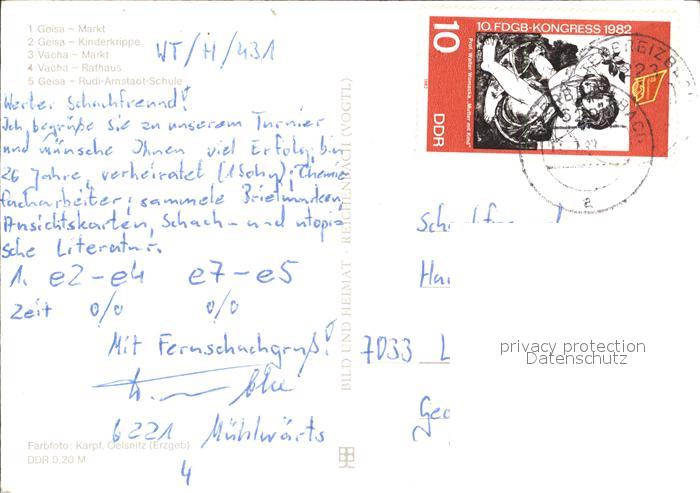 1 Geisa – Markt
2 Geisa – Kinderkrippe
3 Vacha – Markt
4 Vacha – Rathaus
5 Geisa – Rudi-Arnstadt-Schule
WT/H/431
Werter Schachfreund!
Ich begrüße Sie zu unserem Turnier
und wünsche Ihnen viel Erfolg, bin
26 Jahre, verheiratet (1 Sohn), Chemie-
facharbeiter; sammele Briefmarken,
Ansichtskarten, Schach- und utopi-
sche Literatur.
1. e2–e4 e7–e5
Zeit 0/0 0/0
Mit Fernschachgruß!
6221 Mühlwärts
4
Farbfoto: Karpf, Oelsnitz (Erzgeb)
DDR 0,20 M
BILD UND HEIMAT · REICHENBACH (VOGTL)
10
DDR
10. FDGB-KONGRESS 1982
Prof. Walter Womacka, „Mutter mit Kind"
1982
a
7033 L
privacy protection
Datenschutz